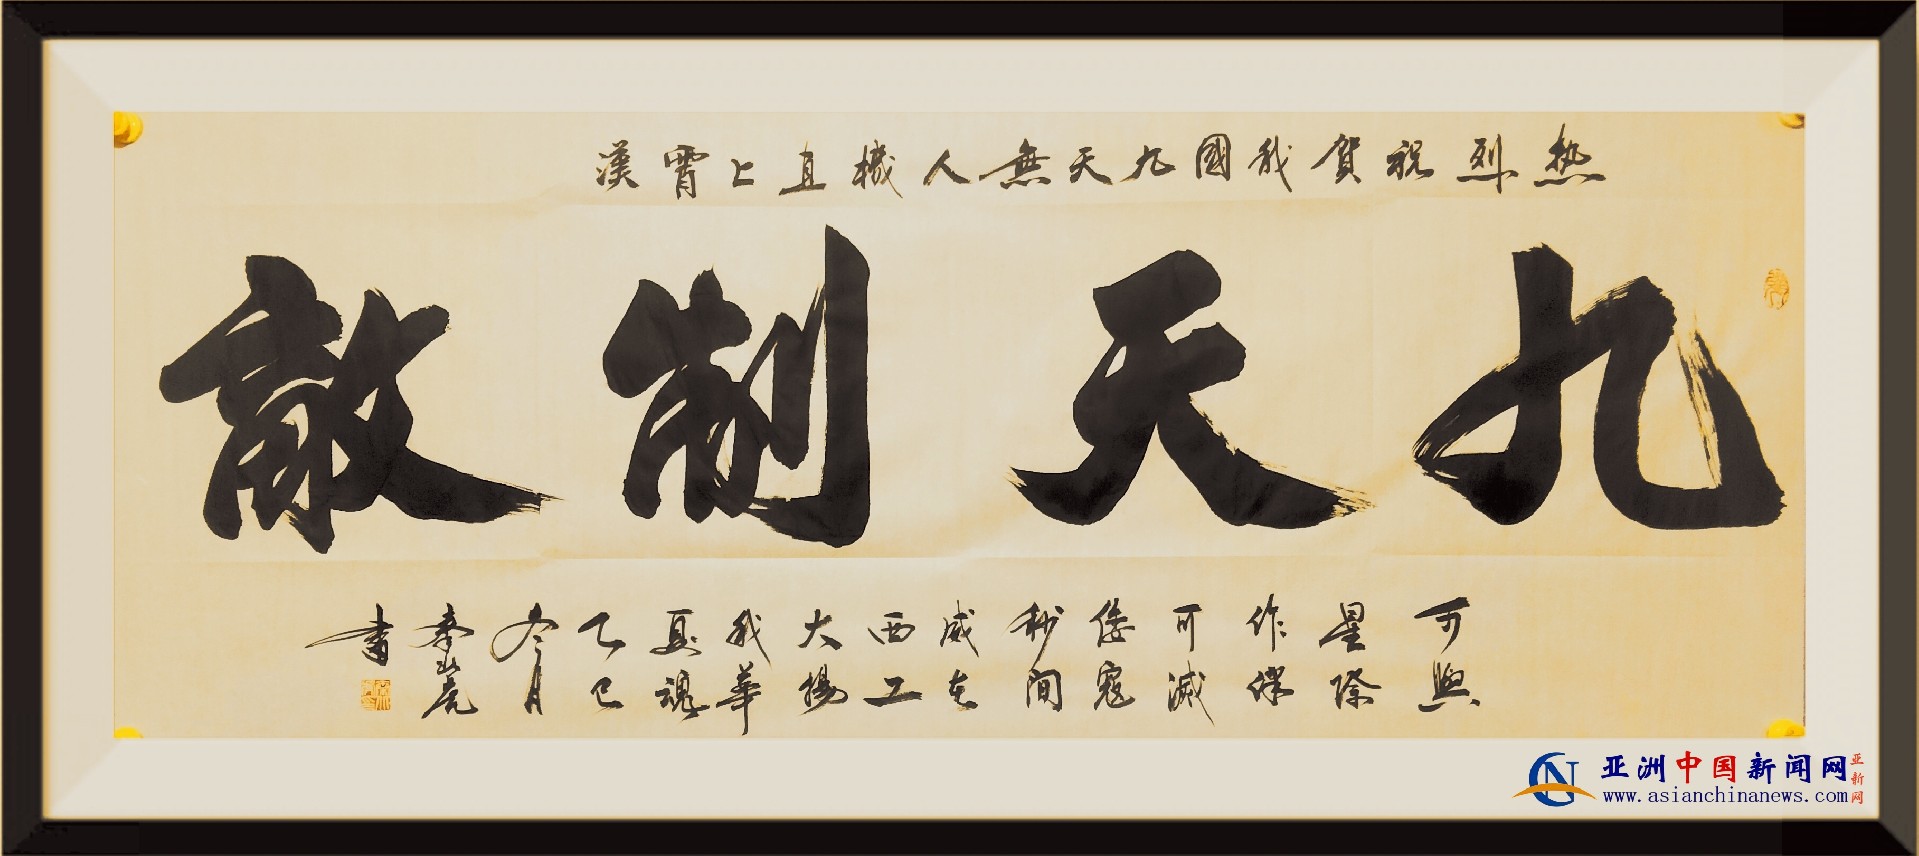 热烈祝賀我國九天無人機直上霄漢
九天制敵
可與
星際
作
可滅
倭寇
秒間
威在
西工
大揚
我華
夏魂
乙巳
冬月
書
亚洲中国新闻网
亚新网
www.asianchinanews.com